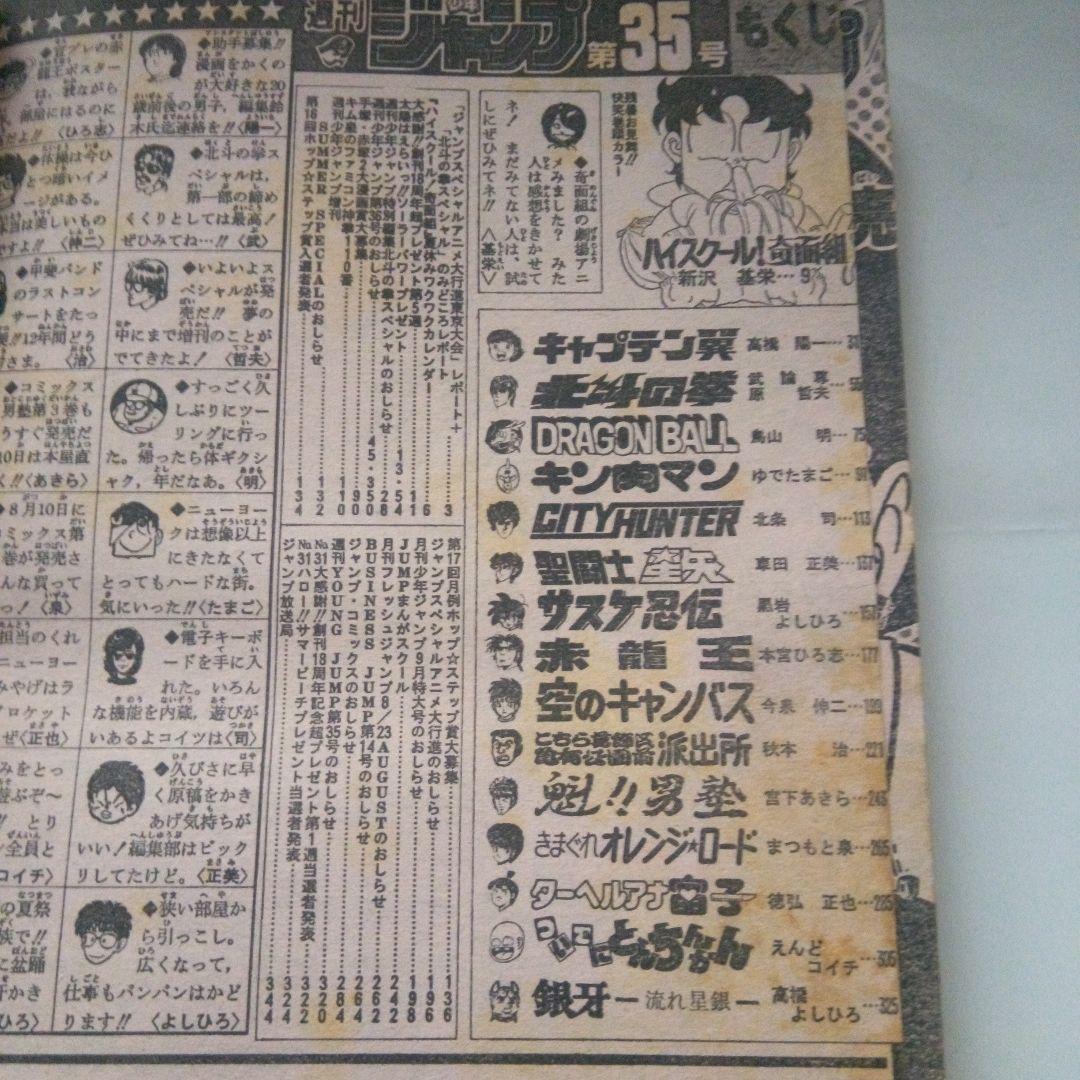 週刊
少年
ジャンプ
第35号
もくじ
残暑お見舞!!
快笑巻頭カラー
ハイスクール!奇面組
新沢 基栄…9
◆奇面組の劇場アニ
メみました? みた
人は感想をきかせて
ネ! まだみてない人は、試
しにぜひみてネ!!
〈基栄〉
キャプテン翼 高橋 陽一…
北斗の拳 武論尊 原 哲夫…
DRAGON BALL 鳥山 明…
キン肉マン ゆでたまご…
CITY HUNTER 北条 司…113
聖闘士星矢 車田 正美…137
サスケ忍伝 黒岩 よしひろ…157
赤龍王 本宮ひろ志…177
空のキャンバス 今泉 伸二…199
こちら葛飾区亀有公園前派出所 秋本 治…221
魁!!男塾 宮下あきら…245
きまぐれオレンジ★ロード まつもと泉…265
ターヘルアナ富子 徳弘 正也…285
ついでにとんちんかん えんどコイチ…305
銀牙―流れ星銀― 高橋 よしひろ…325
「ジャンプスペシャルアニメ大行進東京大会」レポート+
「北斗の拳スペシャル」のみどころレポート……3
「ハイスクール!奇面組」夏休みワクワクカレンダー……6
大感謝!!創刊18周年超プレゼント第5週……11
太陽はえらいっ!!ソーラーパワープレゼント……13・54
週刊少年ジャンプ特別編集北斗の拳スペシャルのおしらせ……28
週刊少年ジャンプ第36号のおしらせ……45・350
手塚・赤塚2大漫画賞大募集……90
キム皇のファミコン神拳110番……110
週刊少年ジャンプ増刊
SUMMER SPECIALのおしらせ……132
第16回ホップ☆ステップ賞入選者発表……134
第17回月例ホップ☆ステップ賞大募集……136
ジャンプスペシャルアニメ大行進のおしらせ……196
月刊少年ジャンプ9月特大号のおしらせ……198
JUMPまんがスクール……242
月刊フレッシュジャンプ8/23AUGUSTのおしらせ……262
BUSINESS JUMP第14号のおしらせ……264
ジャンプ・コミックスのおしらせ……284
週刊YOUNG JUMP第35号のおしらせ……320
No.31大感謝!!創刊18周年記念超プレゼント第1週当選者発表……322
No.31ハロー!!サマーピーチプレゼント当選者発表……324
ジャンプ放送局……344
◆助手募集!!
漫画をかくの
が大好きな20
歳前後の男子、編集鈴
木氏迄連絡を!!〈陽一〉
◆北斗の拳ス
ペシャルは、
第一部の締め
くくりとしては最高!
ぜひみてね…!!〈武〉
◆いよいよス
ペシャルが発
売だ!! 夢の
中にまで増刊のことが
でてきたよ!〈哲夫〉
◆すっごく久
しぶりにツー
リングに行っ
た。帰ったら体ギクシ
ャク,年だなあ。〈明〉
◆ニューヨー
クは想像以上
にきたなくて
とってもハードな街。
気にいった!!〈たまご〉
◆電子キーボ
ードを手に入
れた。いろん
な機能を内蔵,遊びが
いあるよコイツは〈司〉
◆久びさに早
く原稿をかき
あげ気持ちが
いい!編集部はビック
リしてたけど。〈正美〉
◆狭い部屋か
ら引っこし。
広くなって,
仕事もバンバンはかど
ります!!〈よしひろ〉
龍王ポスター
は、我ながら
部屋にはるのに
だよ!!〈ひろ志〉
◆体操は今ひ
とつ暗いイメ
ージがある。
本当は美しいもの
ですよ!!〈伸二〉
◆甲斐バンド
のラストコン
サートをたっ
12年間どう
さま。〈治〉
◆コミックス
男塾第3巻も
うすぐ発売だ
10日は本屋直
く!!〈あきら〉
◆8月10日に
コミックス第
巻が発売さ
んな買って
っ!〈泉〉
担当のくれ
ニューヨー
みやげはラ
ロケット
ぜ〈正也〉
みをとっ
遊ぶぞ〜
!! とり
全員と
コイチ〉
の夏祭
族で!!
に盆踊
汗かき
ひろ〉